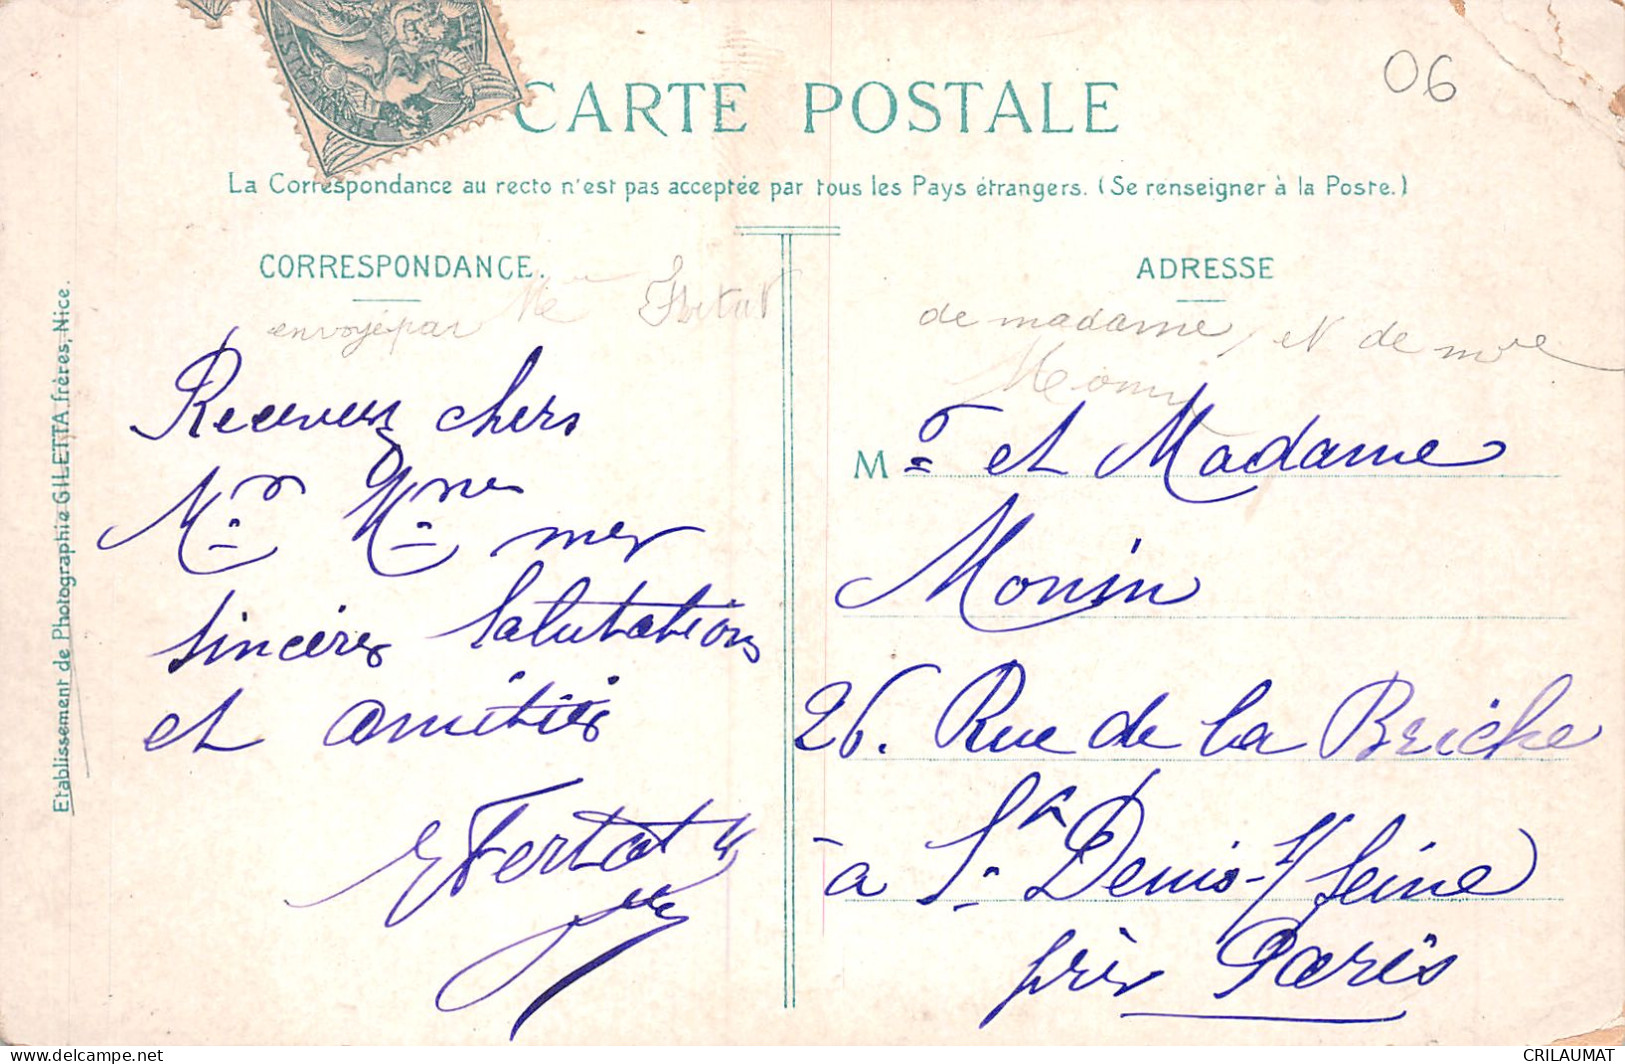 06
CARTE POSTALE
La Correspondance au recto n'est pas acceptée par tous les Pays étrangers. (Se renseigner à la Poste.)
CORRESPONDANCE.
envoyé par Me Fertat
Recevez chers
Mr. Mmes mes
sincères Salutations
et amitiés
E Fertat
ADRESSE
de madame, et de mme
Monin
M r et Madame
Monin
26. Rue de la Briche
à St. Denis s/ Seine
près Paris
Etablissement de Photographie GILETTA frères, Nice.
CRILAUMAT